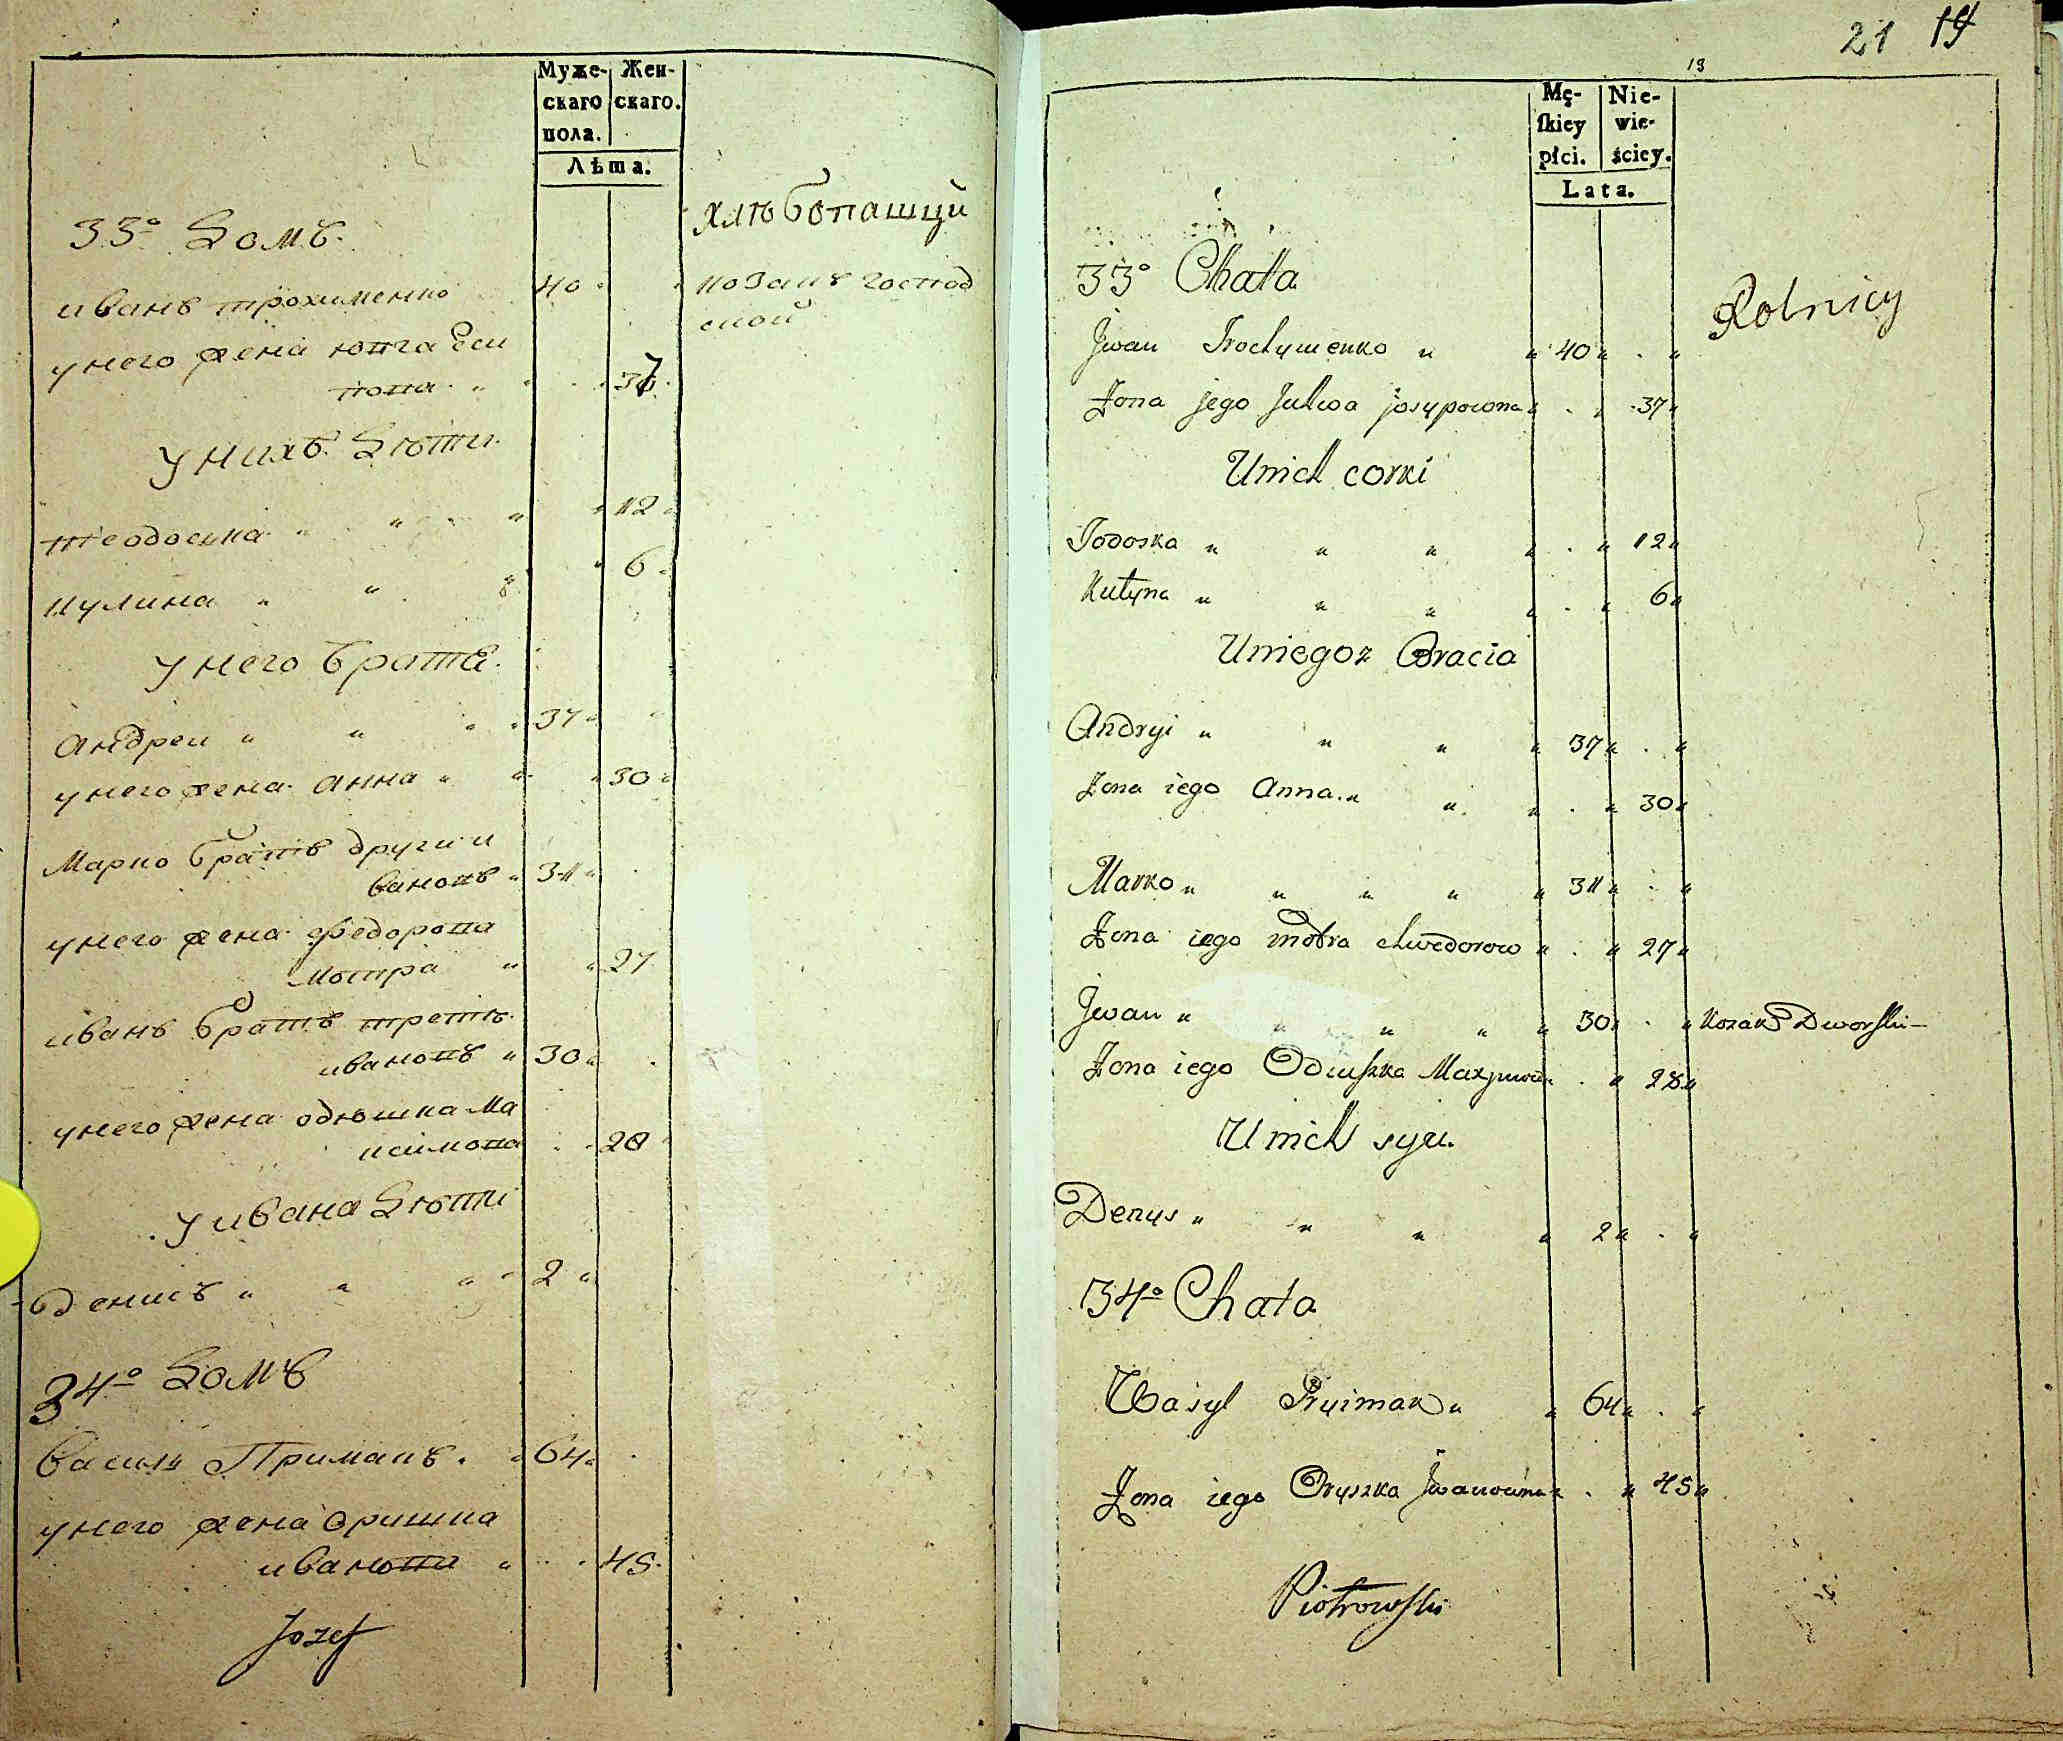 Муже-
скаго
пола.
Жен-
скаго.
Лѣта.
33º Домъ.
хлѣбопашци
иванъ трохименко 40
козакъ господ
ской
у него жена юлга Еси
пова 37
у нихъ дѣти
теодоська " " " 12
кулина " " 6
у него братѣ
андреи " " 37
у него жена анна " 30
Марко братъ други и
вановъ " 31
у него жена федорова
мотра " 27
иванъ братъ трети
ивановъ " 30
у него жена одюшка ма
ксимова 28
у ивана дѣти
денисъ " " " 2
34º Домъ
василь Примакъ 64
у него жена Оришка
иванова " 45
Jozef
21 14
13
Mę-
skiey
płci.
Nie-
wie-
ściey.
Lata.
33º Chata
Rolnicy
Jwan Trochymenko " " 40 " . "
Żona jego Julwa josypowna " . " 37 "
Unich corki
Todoska " " " " . " 12 "
Kulyna " " " " . " 6 "
Uniegoz Bracia
Andryi " " " " 37 " . "
Żona iego Anna " " " . " 30 "
Marko " " " " " 31 " . "
Żona iego motra chwedorow " . " 27 "
Jwan " " " " " 30 " . " Kozak Dworski
Żona iego Odiuszka Maxymow " . " 28 "
Unich syn.
Denys " " " " 2 " . "
34º Chata
Wasyl Pryimak " " 64 " . "
Żona iego Oryszka Jwanowna " . " 45 "
Piotrowski